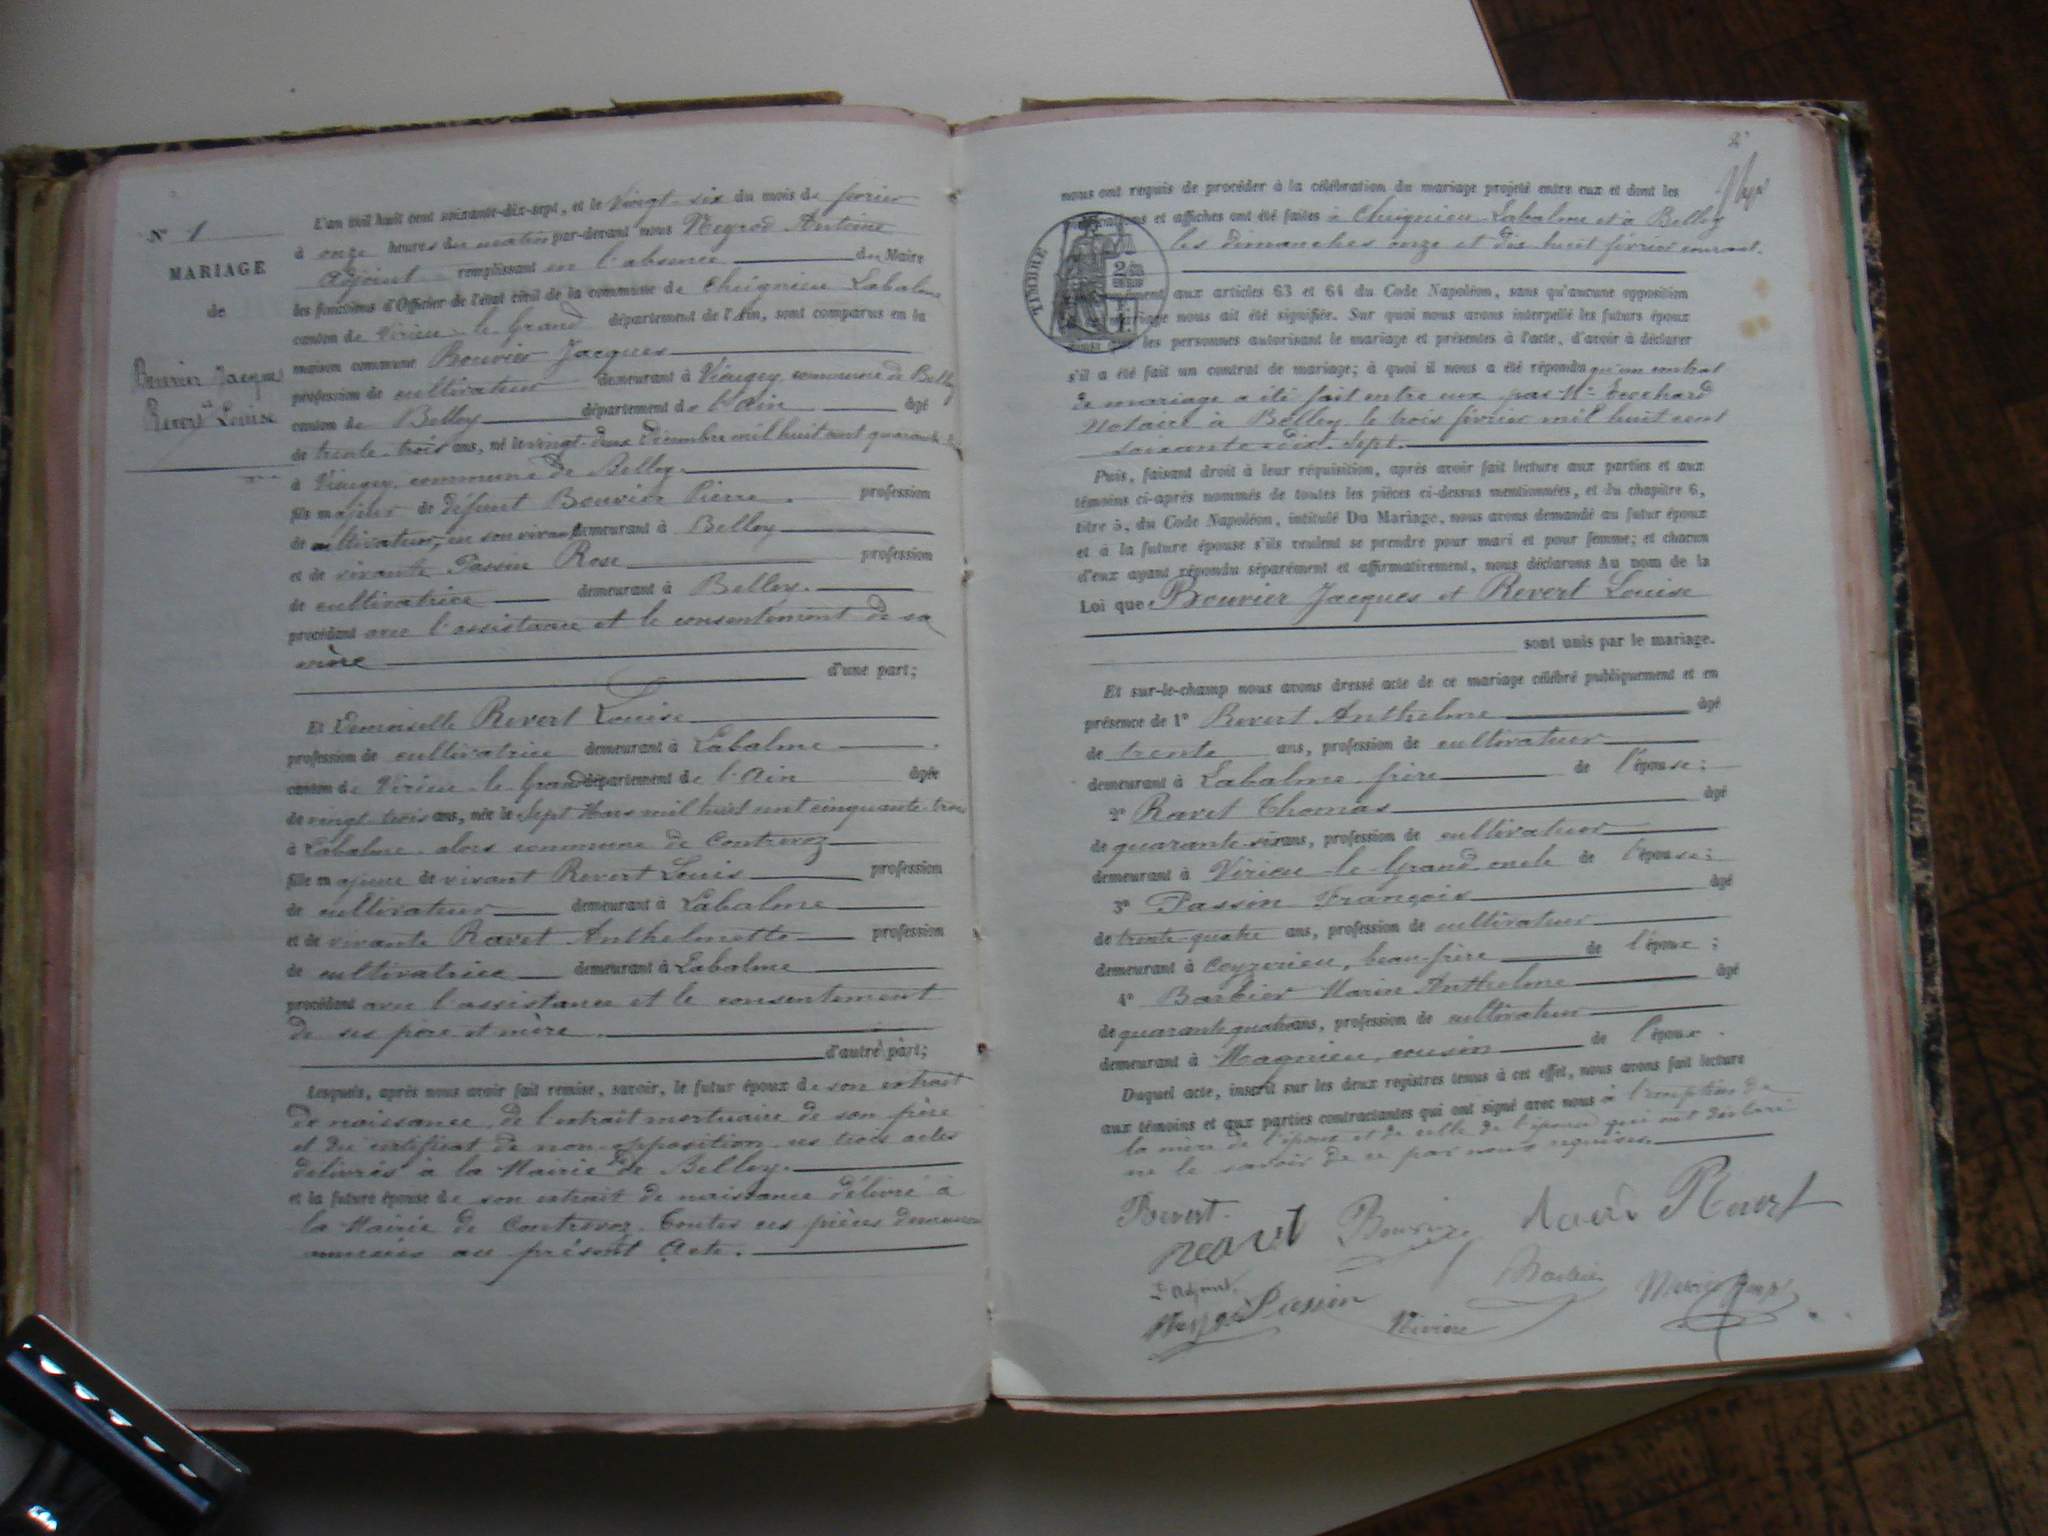 N° 1
MARIAGE
de
Bouvier Jacques
et
Revert Louise
L'an mil huit cent soixante-dix-sept, et le Vingt-six du mois de février
à onze heures du matin par-devant nous Neyrod Antoine
Adjoint remplissant en l'absence du Maire
les fonctions d'Officier de l'état civil de la commune de Cheignieu Labalme
canton de Virieu-le-Grand département de l'Ain, sont comparus en la
maison commune Bouvier Jacques
profession de cultivateur demeurant à Vieugey, commune de Belley
canton de Belley département de l'Ain âgé
de trente-trois ans, né le vingt-deux Décembre mil huit cent quarante-
à Vieugey, commune de Belley.
fils majeur de défunt Bouvier Pierre. profession
de cultivateur, en son vivant demeurant à Belley
et de vivante Passin Rose profession
de cultivatrice demeurant à Belley.
procédant avec l'assistance et le consentement de sa
mère
d'une part;
Et Demoiselle Revert Louise
profession de cultivatrice demeurant à Labalme
canton de Virieu-le-Grand département de l'Ain âgée
de vingt trois ans, née le Sept Mars mil huit cent cinquante-trois
à Labalme, alors commune de Contrevoz
fille majeure de vivant Revert Louis profession
de cultivateur demeurant à Labalme
et de vivante Ravet Anthelmette profession
de cultivatrice demeurant à Labalme
procédant avec l'assistance et le consentement
de ses père et mère.
d'autre part;
Lesquels, après nous avoir fait remise, savoir, le futur époux de son extrait
de naissance, de l'extrait mortuaire de son père
et du certificat de non-opposition, ces trois actes
délivrés à la Mairie de Belley.
et la future épouse de son extrait de naissance délivré à
la Mairie de Contrevoz. Toutes ces pièces demeurent
annexées au présent Acte.
2
nous ont requis de procéder à la célébration du mariage projeté entre eux et dont les
publications et affiches ont été faites à Cheignieu-Labalme et à Belley
les dimanches onze et dix huit février courant.
TIMBRE
aux articles 63 et 64 du Code Napoléon, sans qu'aucune opposition
mariage nous ait été signifiée. Sur quoi nous avons interpellé les futurs époux
ainsi que les personnes autorisant le mariage et présentes à l'acte, d'avoir à déclarer
s'il a été fait un contrat de mariage; à quoi il nous a été répondu qu'un contrat
de mariage a été fait entre eux par Me
Notaire à Belley le trois février mil huit cent
soixante-dix-sept.
Puis, faisant droit à leur réquisition, après avoir fait lecture aux parties et aux
témoins ci-après nommés de toutes les pièces ci-dessus mentionnées, et du chapitre 6,
titre 5, du Code Napoléon, intitulé Du Mariage, nous avons demandé au futur époux
et à la future épouse s'ils veulent se prendre pour mari et pour femme; et chacun
d'eux ayant répondu séparément et affirmativement, nous déclarons Au nom de la
Loi que Bouvier Jacques et Revert Louise
sont unis par le mariage.
Et sur-le-champ nous avons dressé acte de ce mariage célébré publiquement et en
présence de 1° Revert Anthelme âgé
de trente ans, profession de cultivateur
demeurant à Labalme, frère de l'épouse;
2° Ravet Thomas âgé
de quarante-six ans, profession de cultivateur
demeurant à Virieu-le-Grand, oncle de l'épouse;
3° Passin François âgé
de trente-quatre ans, profession de cultivateur
demeurant à Ceyzerieu, beau-frère de l'époux;
4° Barbier Marin Anthelme âgé
de quarante quatre ans, profession de cultivateur
demeurant à Magnieu, cousin de l'époux.
Duquel acte, inscrit sur les deux registres tenus à cet effet, nous avons fait lecture
aux témoins et aux parties contractantes qui ont signé avec nous à l'exception de
la mère de l'époux et de celle de l'épouse qui ont déclaré
ne le savoir de ce par nous requises.
Revert.
ravet Bouvier Revert
L'Adjoint
Passin Barbier